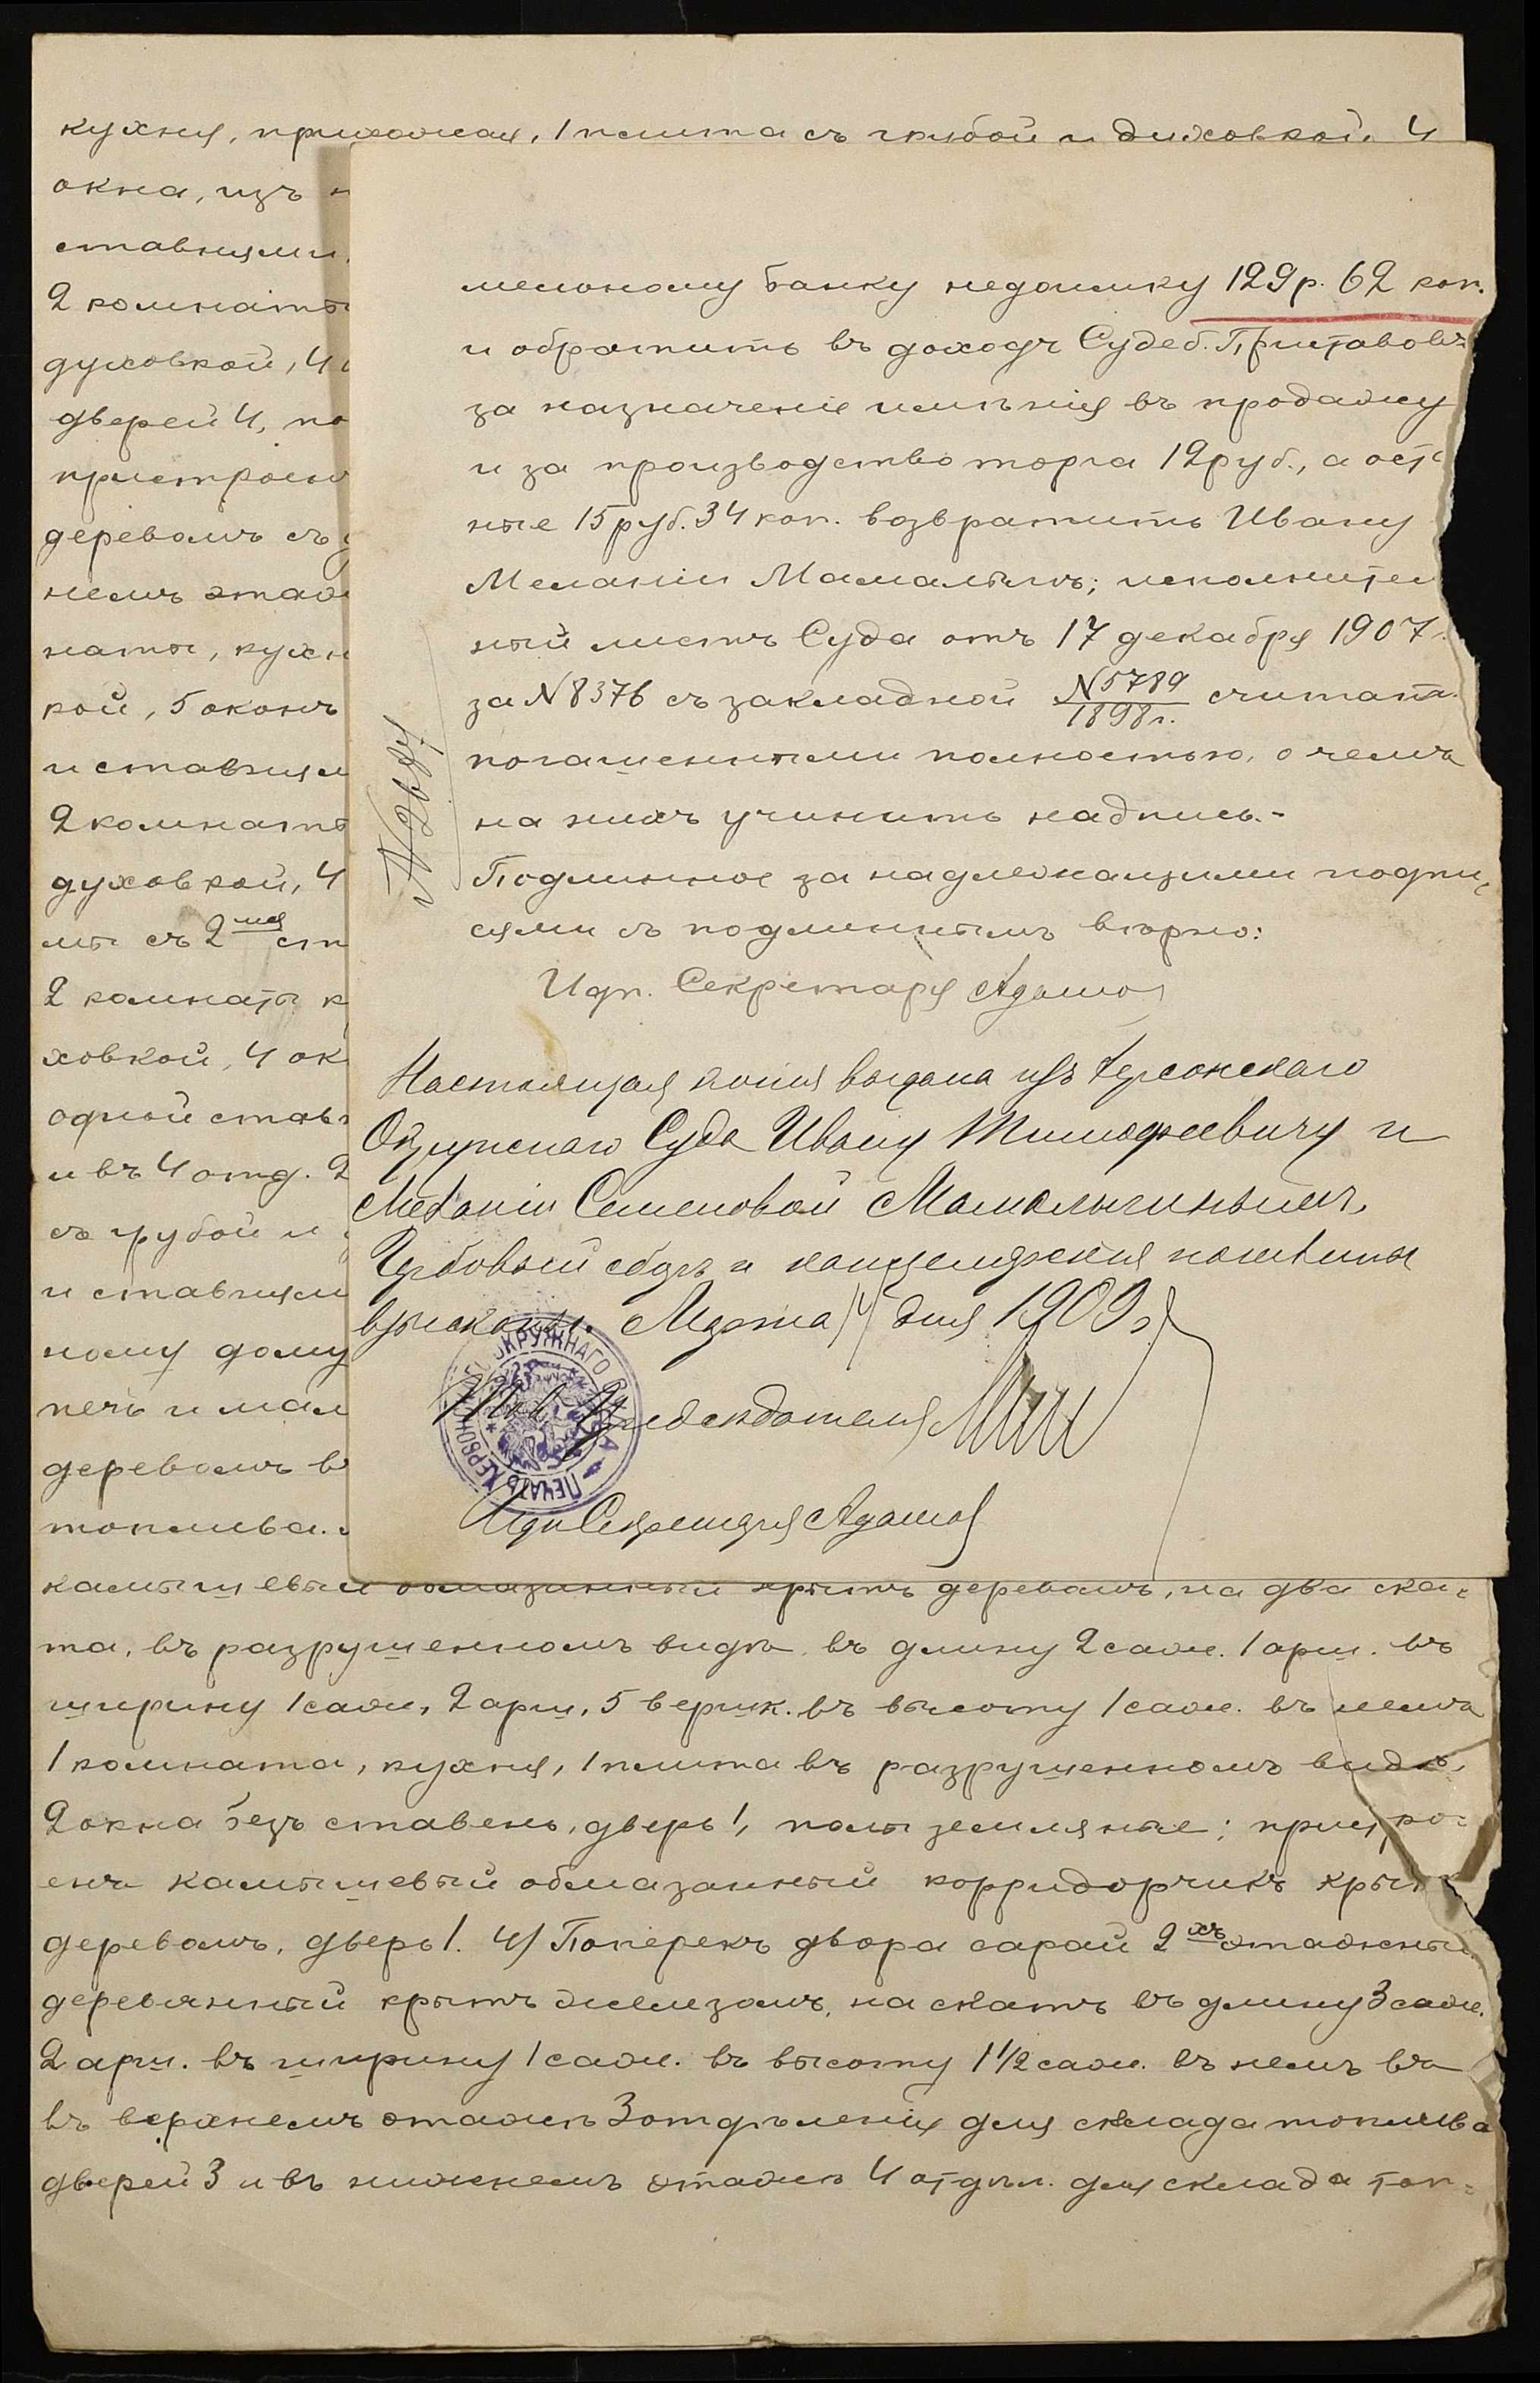 кухня, прихожая, 1 плита съ грубой и духовкой, 4
окна, изъ
ставнями,
2 комнаты
духовкой, 4
дверей 4, по
пристроен
деревомъ съ
немъ этаж
наты, кухн
кой, 5 оконъ
и ставням
2 комнаты
духовкой, 4
мы съ 2 мя ст
2 комнаты к
ховкой, 4 ок
одной став
и въ 4 отд. 2
съ грубой и
и ставням
ному дому
печь и мал
деревомъ в
топлива.
мельному банку недоимку 129 р. 62 коп.
и обратить въ доходъ Судеб. Приставовъ
за назначеніе имѣнія въ продажу
и за производство торга 12 руб., а ост
ные 15 руб. 34 коп. возвратить Ивану
Меланіи Мамалыгинъ; исполнител
ный листъ Суда отъ 17 декабря 1907
за N 8376 съ закладной N 5789/1898 г. считать
погашенными полностью, о чемъ
на нихъ учинить надпись.-
Подлинное за надлежащими подпи-
сями съ подлиннымъ вѣрно:
Идп. Секретаря Адамов
Настоящая копія выдана изъ Херсонскаго
Окружнаго Суда Ивану Тимофеевичу и
Меланіи Семеновой Мамалыгинымъ,
Гербовый сборъ и канцелярскія пошлины
взысканы. Марта 14 дня 1909 г.
Тов. Предсѣдателя
Идп Секретаря Адамов
ПЕЧАТЬ ХЕРСОНСКАГО ОКРУЖНАГО СУДА
камышевый обмазанный крытъ деревомъ, на два ска-
та, въ разрушенномъ видѣ, въ длину 2 саж. 1 арш. въ
ширину 1 саж, 2 арш, 5 вершк. въ высоту 1 саж. въ немъ
1 комната, кухня, 1 плита въ разрушенномъ видѣ,
2 окна безъ ставень, дверь 1, полы земляные; пристро-
енъ камышевый обмазанный корридорчикъ крыт
деревомъ, дверь 1. 4) Поперекъ двора сарай 2 хъ этажный
деревянный крытъ железомъ, на скатъ въ длину 3 саж.
2 арш. въ ширину 1 саж. въ высоту 1 1/2 саж. въ немъ въ
въ верхнемъ этажѣ 3 отдѣленія для склада топлива
дверей 3 и въ нижнемъ этажѣ 4 отдѣл. для склада топ-